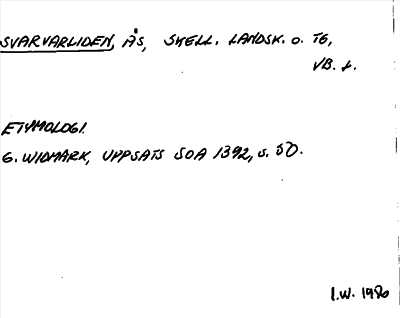 SVARVARLIDEN, ÅS, SKELL. LANDSK. o. TG,
VB. L.
ETYMOLOGI.
G. WIDMARK, UPPSATS SOA 1392, s. 50.
I.W. 1980